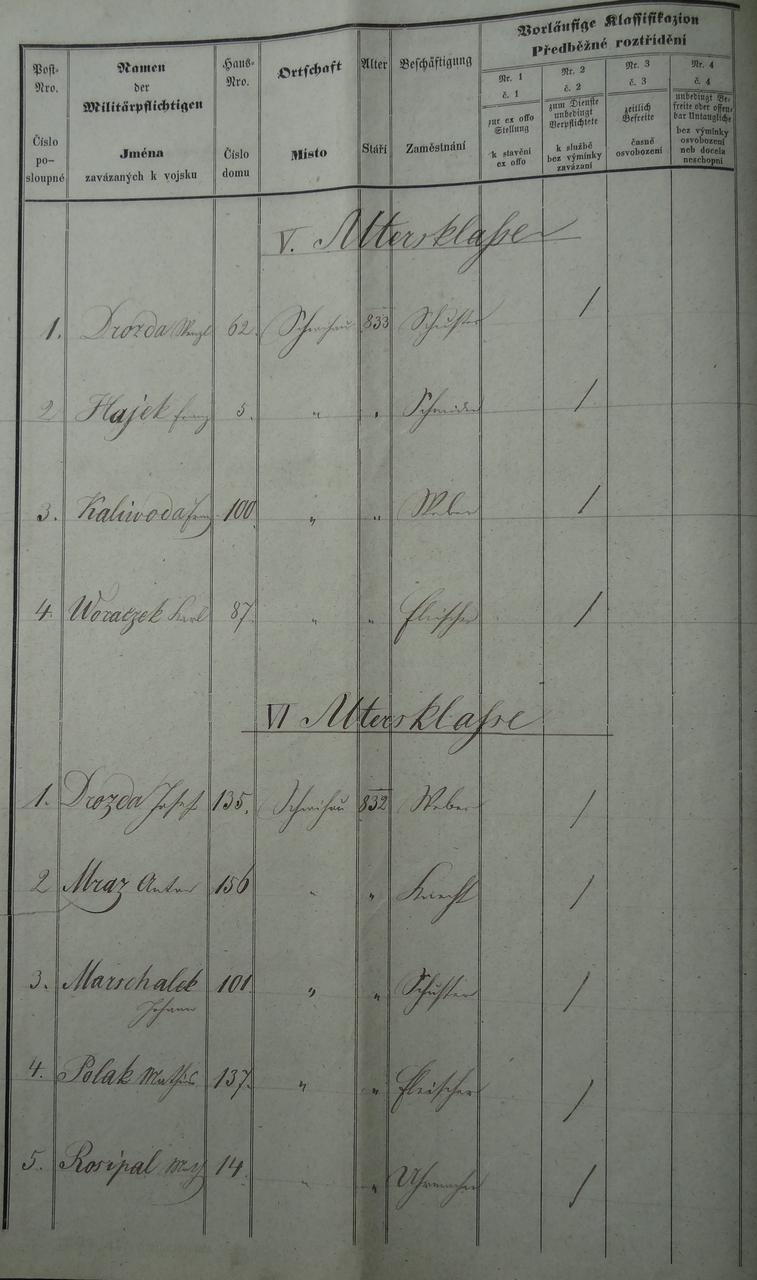 Vorläufige Klassifikazion
Předběžné roztřídění
Post-
Nro.
Číslo
po-
sloupné
Namen
der
Militärpflichtigen
Jména
zavázaných k vojsku
Haus-
Nro.
Číslo
domu
Ortschaft
Místo
Alter
Stáří
Beschäftigung
Zaměstnání
Nr. 1
č. 1
zur ex offo
Stellung
k stavění
ex offo
Nr. 2
č. 2
zum Dienste
unbedingt
Verpflichtete
k službě
bez výmínky
zavázaní
Nr. 3
č. 3
zeitlich
Befreite
časně
osvobození
Nr. 4
č. 4
unbedingt Be-
freite oder offen-
bar Untaugliche
bez výmínky
osvobození
neb docela
neschopní
V. Altersklasse
1. Drozda Wenzl 62. Schwihau 833 Schuster /
2 Hajek Franz 5. " " Schneider /
3. Kaliwoda Franz 100 " " Weber /
4. Woratzek Karl 87. " " Fleischer /
VI Altersklasse
1. Drozda Josef 135. Schwihau 832 Weber /
2 Mraz Anton 156 " " Knecht /
3. Marschalek 101. " " Schuster /
Johann
4. Polak Mathias 137. " " Fleischer /
5. Rosipal 14. " " Uhrmacher /